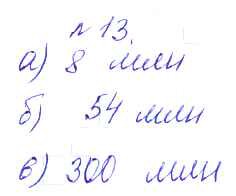 № 13.
а) 8 млн
б) 54 млн
в) 300 млн